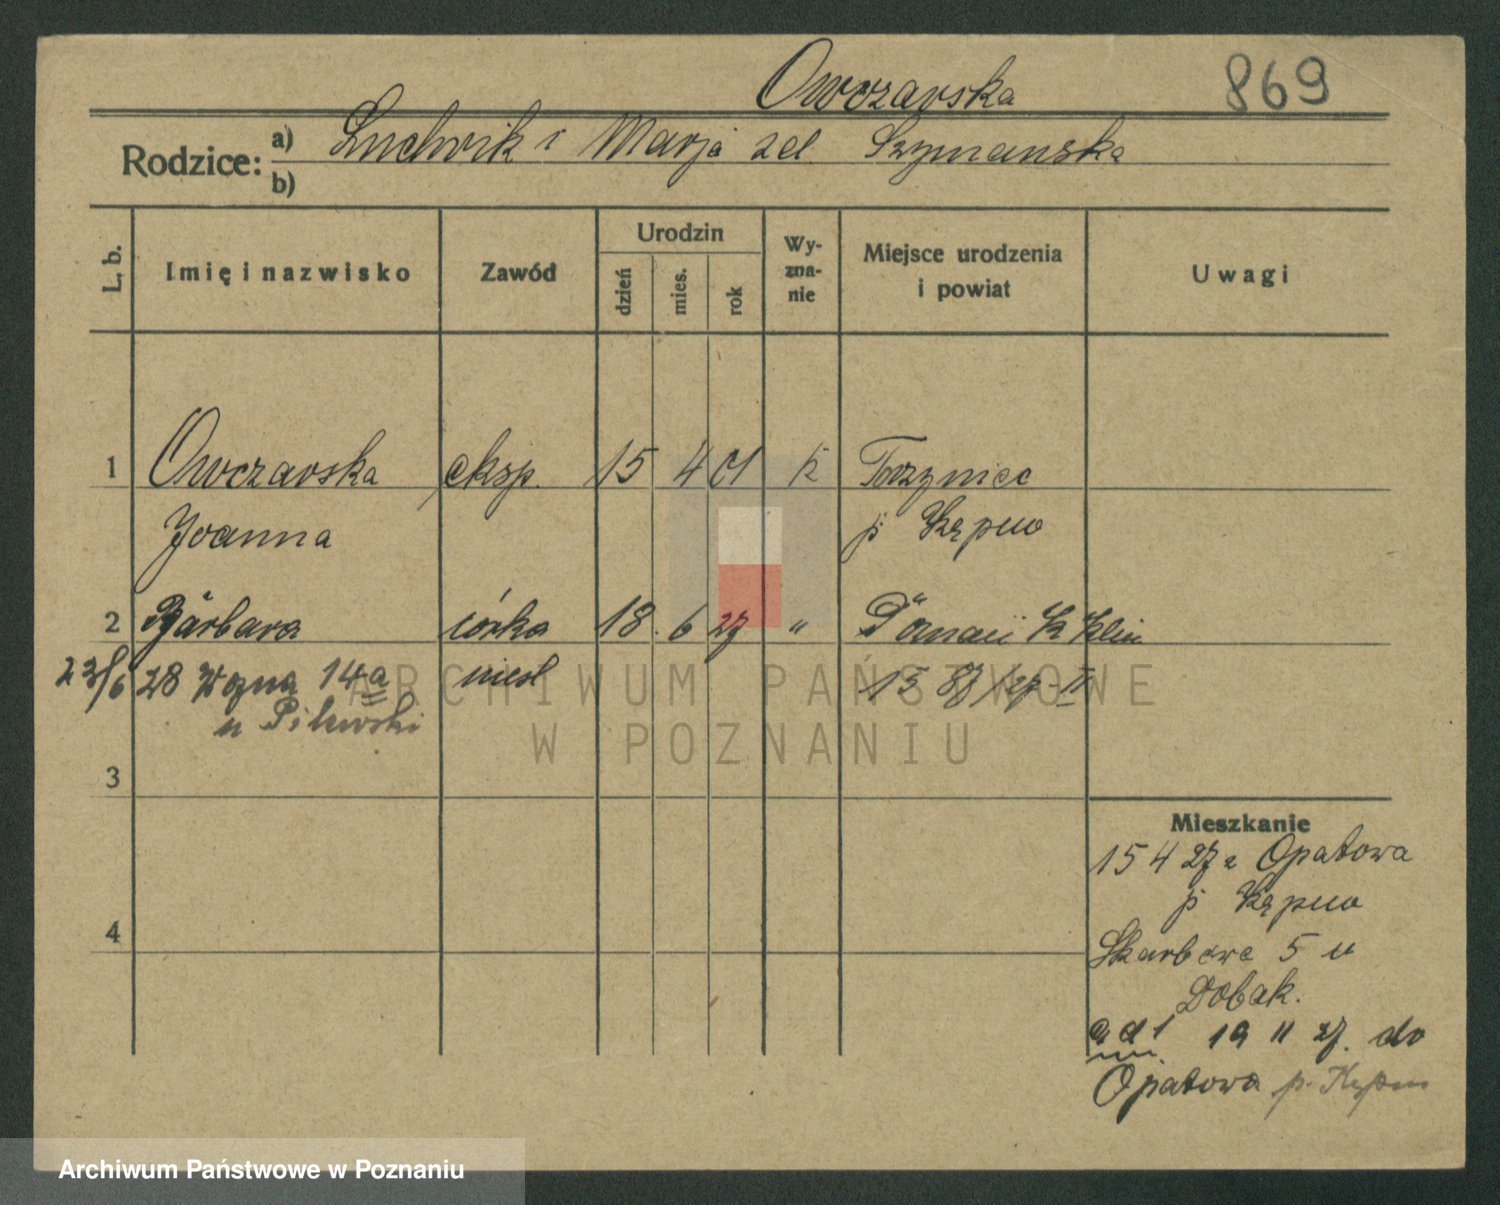 Owczarska 869
Rodzice: a) Ludwik i Marja zd. Szymanska
b)
L. b. Imię i nazwisko Zawód Urodzin dzień mies. rok Wy-zna-nie Miejsce urodzenia i powiat Uwagi
1 Owczarska eksp. 15 4 01 k Torzyniec
Joanna p Kępno
2 Barbara córka 18. 6 27 " Poznań K Klin
23/6 28 Woźna 14a niesl 15 87/27-II
u Pilewski
3
Mieszkanie
15 4 27 z Opatowa
p Kępno
4
Skarbowa 5 u
Dobak.
19 11 27. do
Opatowa p. Kępno
ARCHIWUM PAŃSTWOWE
W POZNANIU
Archiwum Państwowe w Poznaniu